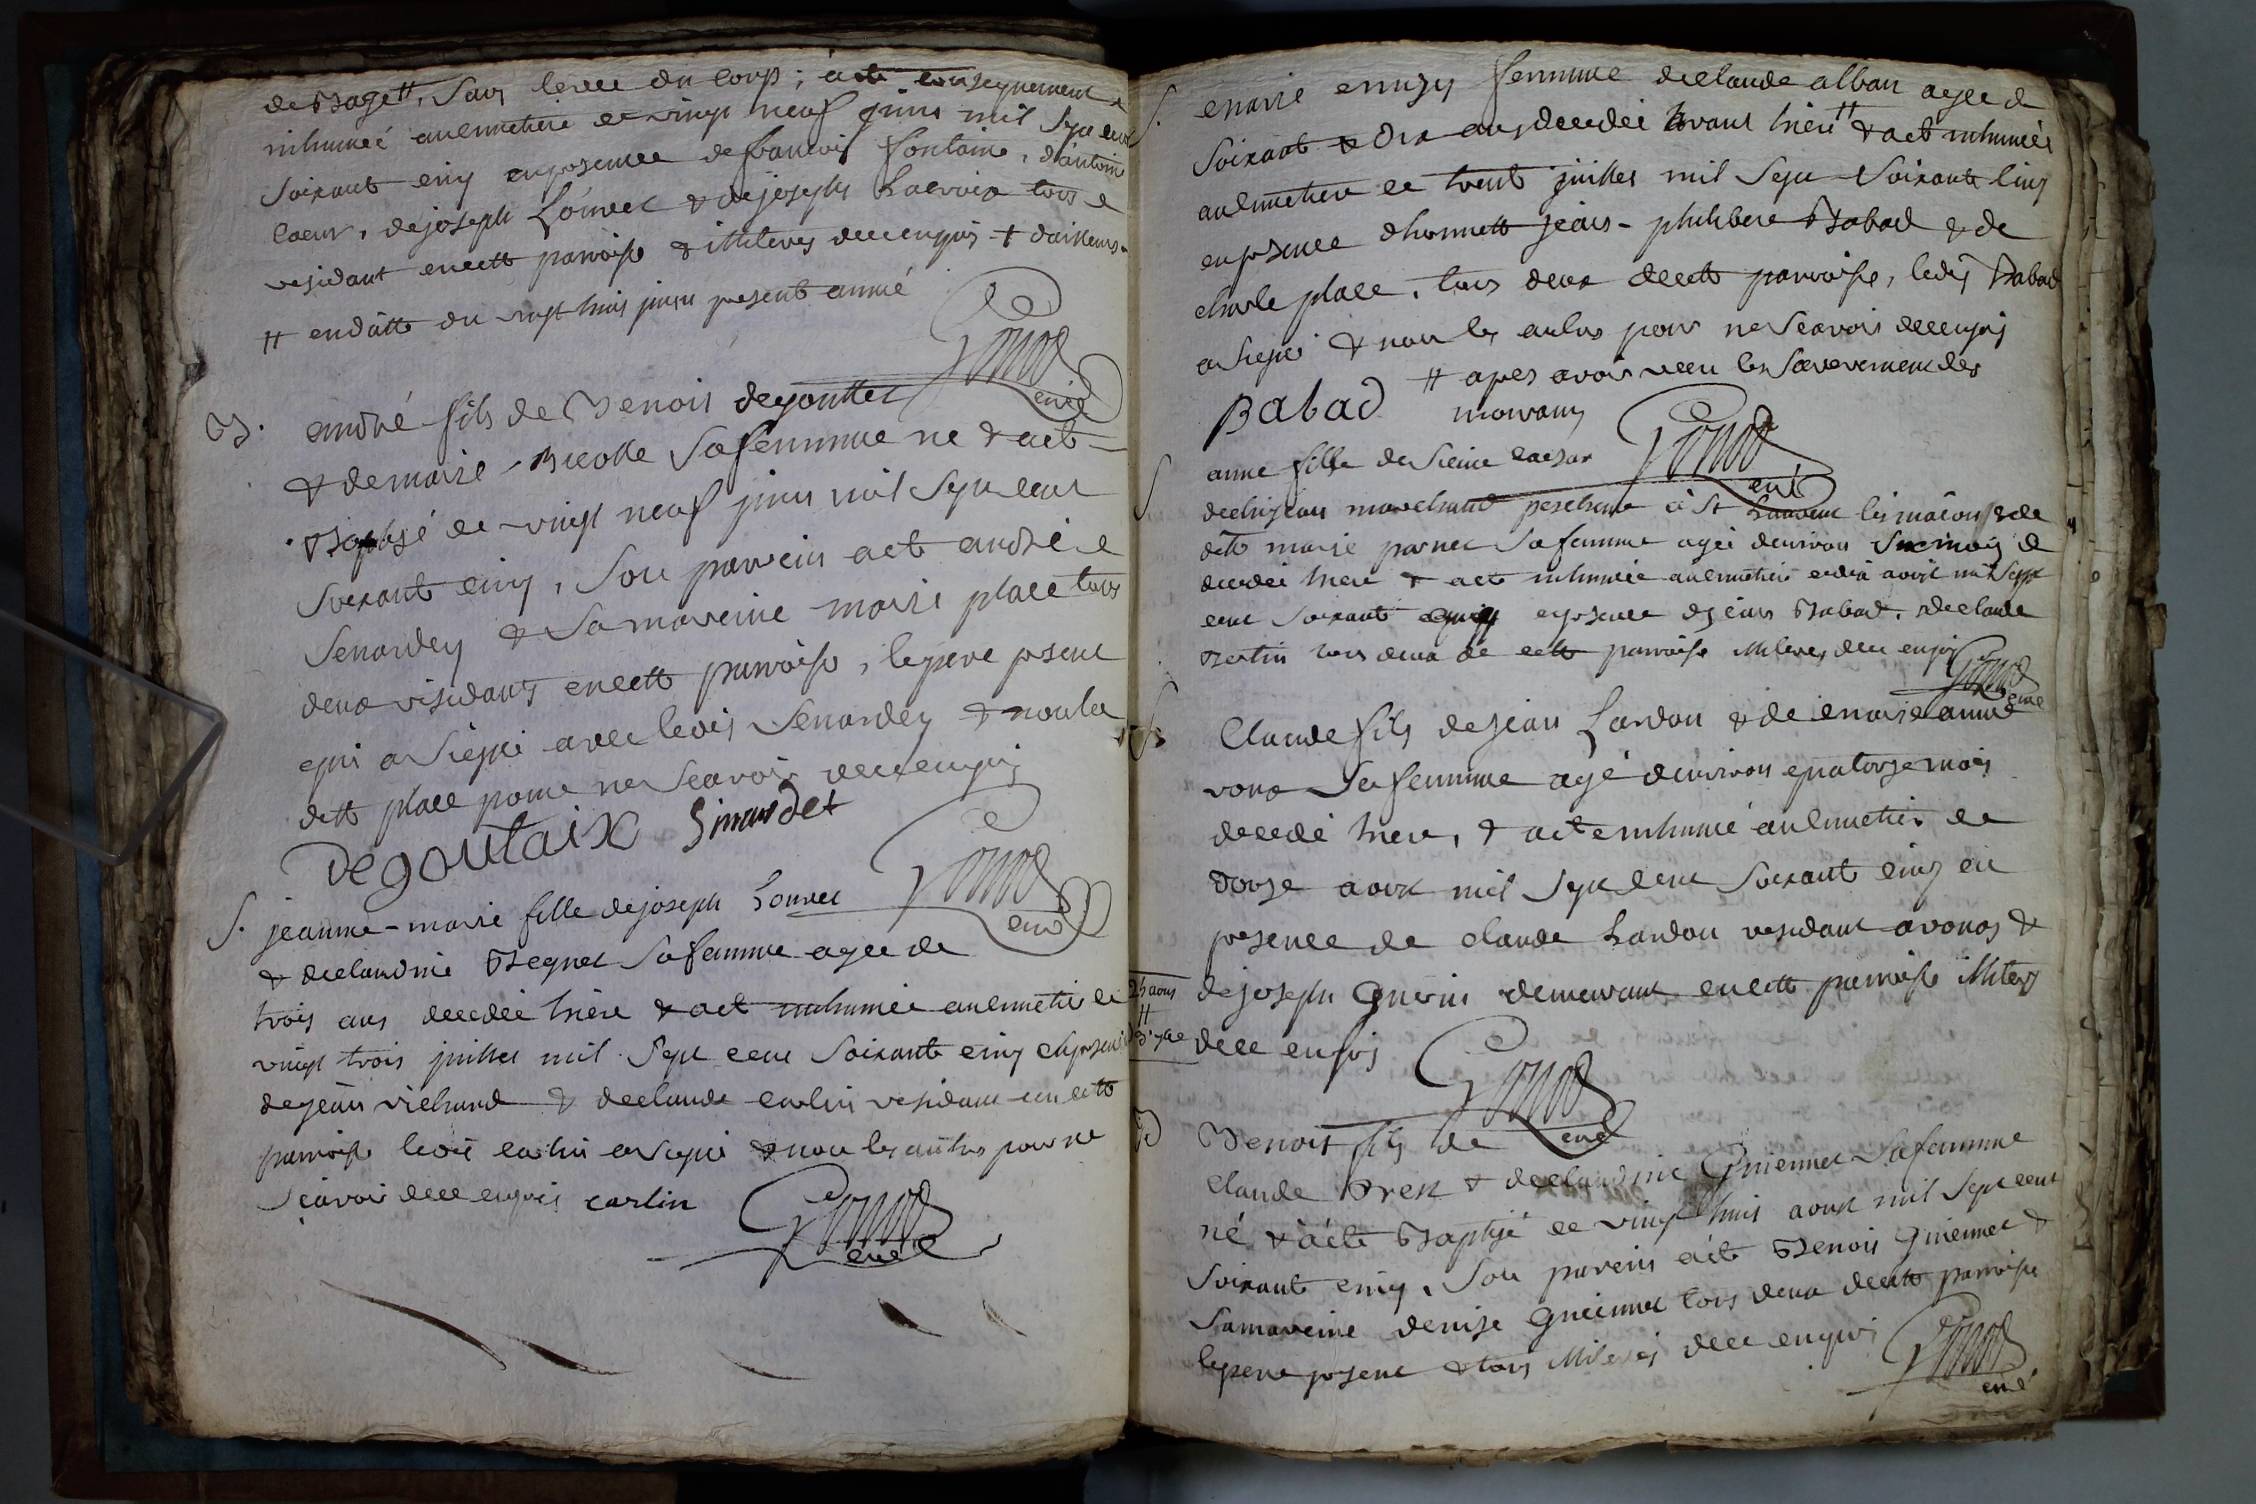 de Bage ⩩, sans levee du corps ; a été
inhumée au cimetiere ce vingt neuf juin mil sept cent
soixante cinq en presence de francois fontaine, d'antoine
coeur, de joseph Louvet & de joseph Lacroix tous
residant en cette parroisse & illiteres de ce enquis
⩩ en datte du vingt huit juin presente année
Gonod
curé
B. andré fils de Benoit degouttet
& de marie Nicolle sa femme ne & a eté
Baptisé ce vingt neuf juin mil sept cent
soixante cinq, son parrein a eté andré
Senardey & sa mareine marie place tous
deux residants en cette parroisse, le pere present
qui a signé avec ledit Senardey & non la
ditte place pour ne scavoir de ce enquis
Degoutaix Sinardet
Gonod
curé
S. jeanne-marie fille de joseph Louvet
& de claudine Begnet sa femme agee de
trois ans decedée hiere & a eté inhumée au cimetiere ce
vingt trois juillet mil sept cent soixante cinq en presence
de jean vichard & de claude carlin residant en cette
parroisse ledit carlin a signé & non les autres pour ne
scavoir de ce enquis carlin
Gonod
curé
S. marie femme de claude alban agee de
soixante & dix ans decedée avant hiere ⩩ & a eté inhumée
au cimetiere ce trente juillet mil sept soixante cinq
en presence d'honnette jean-philibere Babad & de
charle place, tous deux de cette parroisse, ledit Babad
a signé & non les autres pour ne scavoir de ce enquis
⩩ apres avoir receu les sacremens des
Babad mourans
Gonod
curé
S anne fille de sieur caesar
marchand a St Laurent les macon & de
dette marie parnet sa femme agée d'environ six mois
decedée hiere & a eté inhumée au cimetiere le dix aout mil sept
cent soixante cinq en presence de jean Babad, de claude
Bertin tous deux de cette parroisse illiteres de ce enquis
Gonod
curé
S Claude fils de jean Lardon & de marie anne
roux sa femme agé d'environ quatorze mois
decedé hiere, & a eté inhumé au cimetiere ce
douze aout mil sept cent soixante cinq en
presence de claude Lardon residant a vonas &
de joseph Guerin demeurant en cette parroisse illiteres
de ce enquis
Gonod
curé
25 aout
⩩
B Benoit fils de
claude Prex & de claudine Guiennet sa femme
né & a eté Baptisé ce vingt huit aout mil sept cent
soixante cinq, son parein a eté Benoit Guiennet &
sa mareine denise Guiennet tous deux de cette parroisse
le pere present & tous illiteres de ce enquis
Gonod
curé